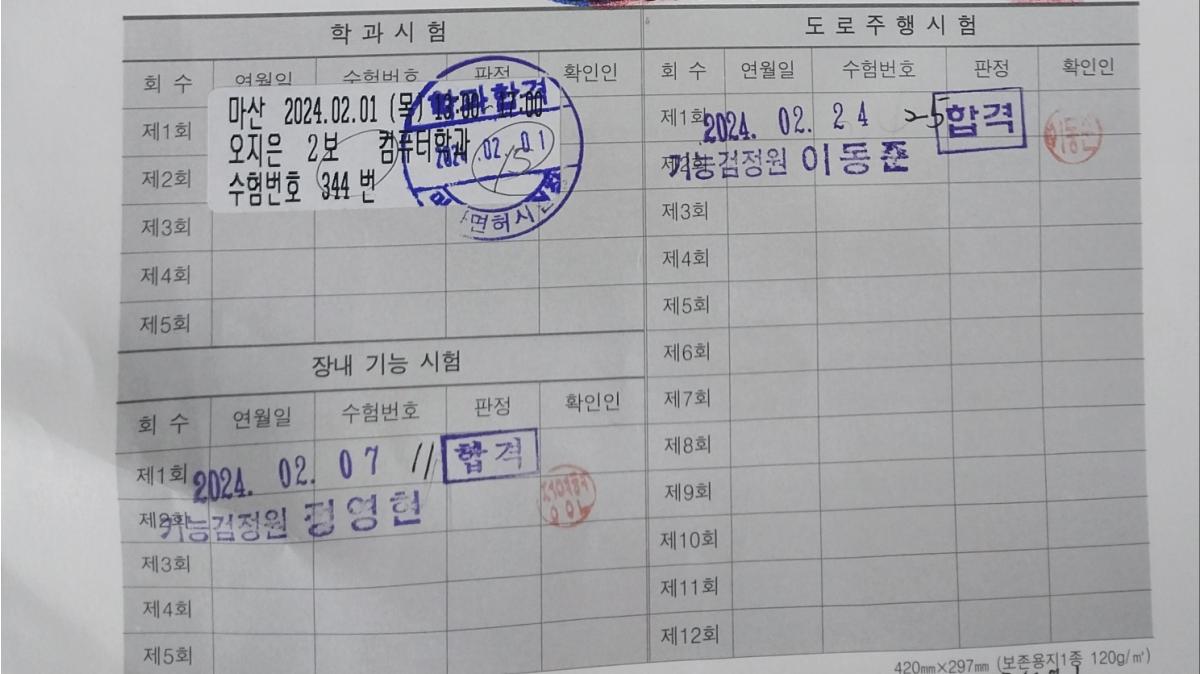 학과시험
회 수 연월일 수험번호 판정 확인인
마산 2024.02.01 (목) 13:00~17:00
오지은 2보 컴퓨터학과
수험번호 344 번
학과합격
2024 02. 01
면허시
제1회
제2회
제3회
제4회
제5회
장내 기능 시험
회 수 연월일 수험번호 판정 확인인
제1회 2024. 02. 07 11 합격
제2회 기능검정원 정영현
제3회
제4회
제5회
도로주행시험
회 수 연월일 수험번호 판정 확인인
제1회 2024. 02. 24 2-5 합격
제2회 기능검정원 이동준
제3회
제4회
제5회
제6회
제7회
제8회
제9회
제10회
제11회
제12회
420㎜×297㎜ (보존용지1종 120g/㎡)